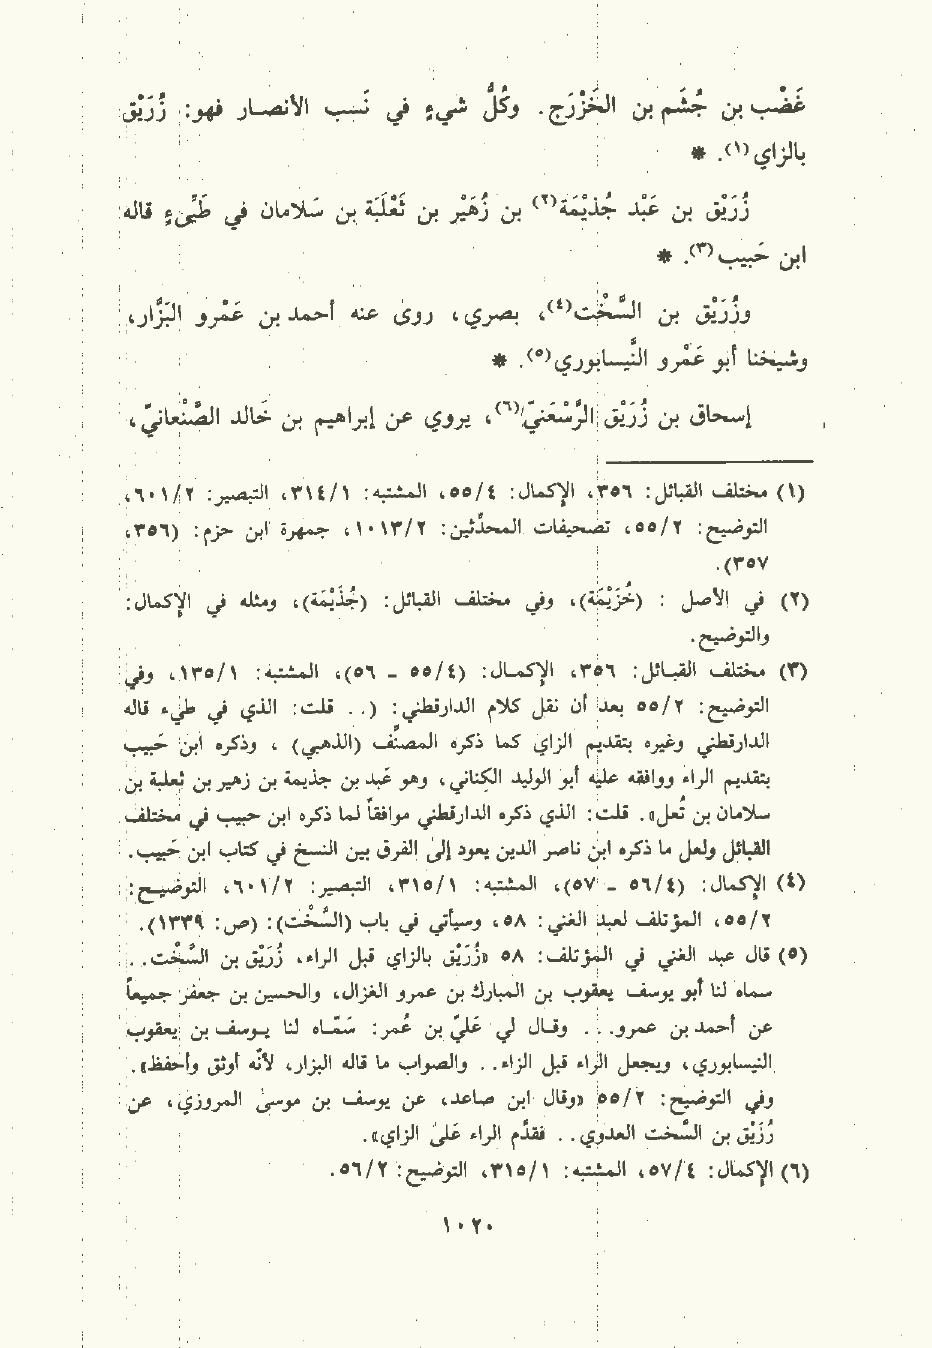 غَضْب بن جُشَم بن الخَزْرَج. وكُلُّ شيءٍ في نَسب الأنصار فهو: زُرَيْق
بالزاي(١). *
زُرَيْق بن عَبْد جُذيْمَة(٢) بن زُهَيْر بن ثَعْلَبَة بن سَلامان في طَيِّىءٍ قاله
ابن حَبيب(٣). *
وزُرَيْق بن السَّخْت(٤)، بصري، روى عنه أحمد بن عَمْرو البَزَّار،
وشيخنا أبو عَمْرو النَّيسابوري(٥). *
إسحاق بن زُرَيْق الرَّسْعَنيّ(٦)، يروي عن إبراهيم بن خَالد الصَّنْعانيّ،
(١) مختلف القبائل: ٣٥٦، الإكمال: ٥٥/٤، المشتبه: ٣١٤/١، التبصير: ٦٠١/٢،
التوضيح: ٥٥/٢، تصحيفات المحدّثين: ١٠١٣/٢، جمهرة ابن حزم: (٣٥٦،
٣٥٧).
(٢) في الأصل : (خُزَيْمَة)، وفي مختلف القبائل: (جُذَيْمَة)، ومثله في الإكمال:
والتوضيح.
(٣) مختلف القبائل: ٣٥٦، الإكمال: (٥٥/٤ - ٥٦)، المشتبه: ١٣٥/١، وفي
التوضيح: ٥٥/٢ بعد أن نقل كلام الدارقطني: (.. قلت: الذي في طيء قاله
الدارقطني وغيره بتقديم الزاي كما ذكره المصنِّف (الذهبي) ، وذكره ابن حَبيب
بتقديم الراء ووافقه عليه أبو الوليد الكناني، وهو عَبد بن جذيمة بن زهير بن ثعلبة بن
سلامان بن ثُعل». قلت: الذي ذكره الدارقطني موافقاً لما ذكره ابن حبيب في مختلف
القبائل ولعل ما ذكره ابن ناصر الدين يعود إلى الفرق بين النسخ في كتاب ابن حَبيب.
(٤) الإكمال: (٥٦/٤ - ٥٧)، المشتبه: ٣١٥/١، التبصير: ٦٠١/٢، التوضيح:
٥٥/٢، المؤتلف لعبد الغني: ٥٨، وسيأتي في باب (السَّخْت): (ص: ١٣٣٩).
(٥) قال عبد الغني في المؤتلف: ٥٨ «زُرَيْق بالزاي قبل الراء، زُرَيْق بن السَّخْت..
سماه لنا أبو يوسف يعقوب بن المبارك بن عمرو الغزال، والحسين بن جعفر جميعاً
عن أحمد بن عمرو... وقال لي عَليّ بن عُمر: سَمَّاه لنا يوسف بن يعقوب
النيسابوري، ويجعل الراء قبل الزاء.. والصواب ما قاله البزار، لأنّه أوثق وأحفظ».
وفي التوضيح: ٥٥/٢ «وقال ابن صاعد، عن يوسف بن موسى المروزي، عن
رُزَيْق بن السَّخت العدوي.. فقدَّم الراء عَلىٰ الزاي».
(٦) الإكمال: ٥٧/٤، المشتبه: ٣١٥/١، التوضيح: ٥٦/٢.
١٠٢٠